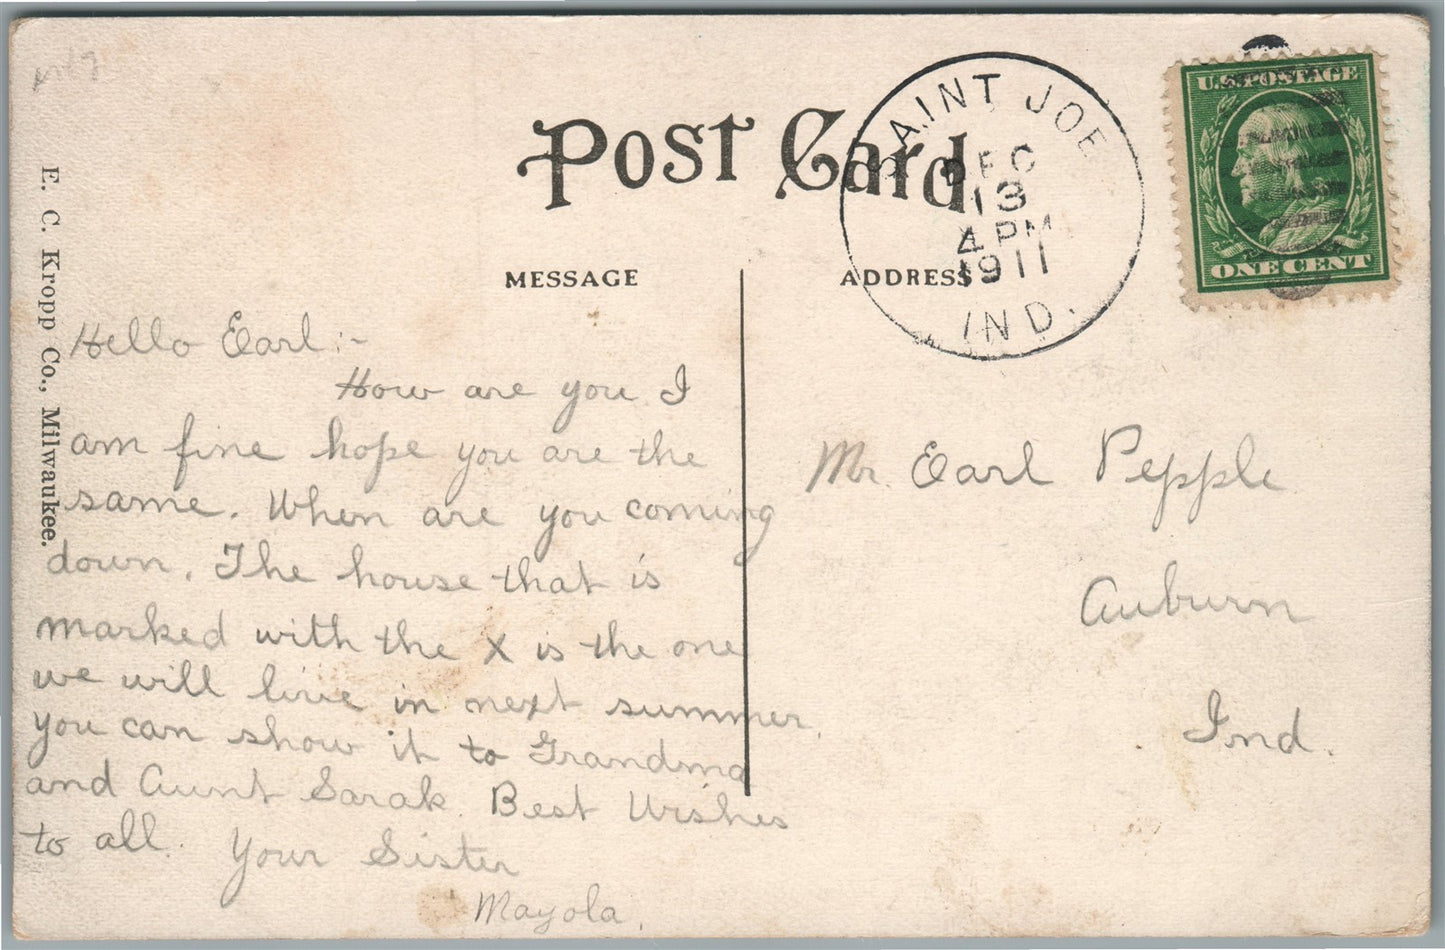 Post Card
SAINT JOE
DEC
13
4 PM
1911
IND.
U.S. POSTAGE
ONE CENT
E. C. Kropp Co., Milwaukee.
MESSAGE
ADDRESS
Hello Earl:-
How are you I
am fine hope you are the
same. When are you coming
down. The house that is
marked with the X is the one
we will live in next summer.
you can show it to Grandma
and Aunt Sarah. Best Wishes
to all. Your Sister
Mayola.
Mr. Earl Pepple
Auburn
Ind.